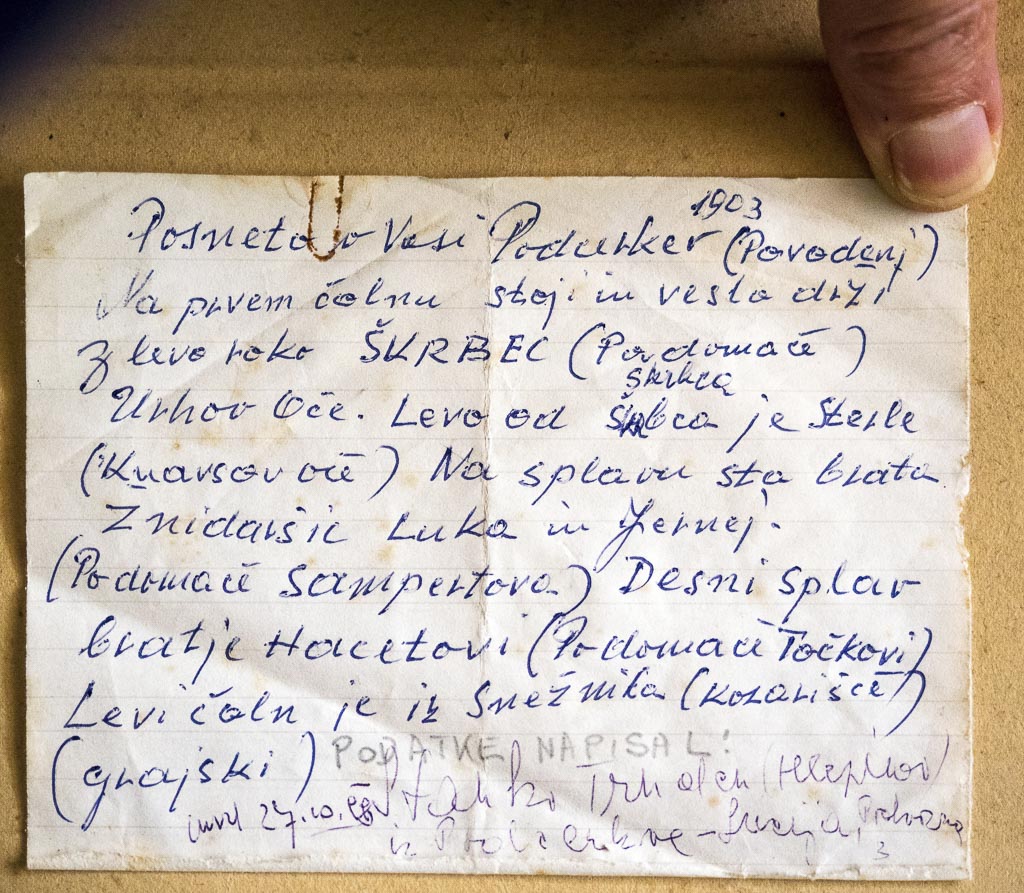 1903
Posneto v Vasi Podcerker (Povodenj)
Na prvem čolnu stoji in veslo drži
z levo roko ŠKRBEC (Podomače)
Škrbca
Urhov Oče. Levo od je Sterle
(Knavsov oče) Na splavu sta brata
Žnidaršič Luka in Jernej.
(Podomače Sampertova) Desni splav
bratje Hacetovi (Podomače Točkovi)
Levi čoln je iz Snežnika (Kozarišče)
(grajski) PODATKE NAPISAL:
Stanko
umrl 27.10. iz - Lucija,
3